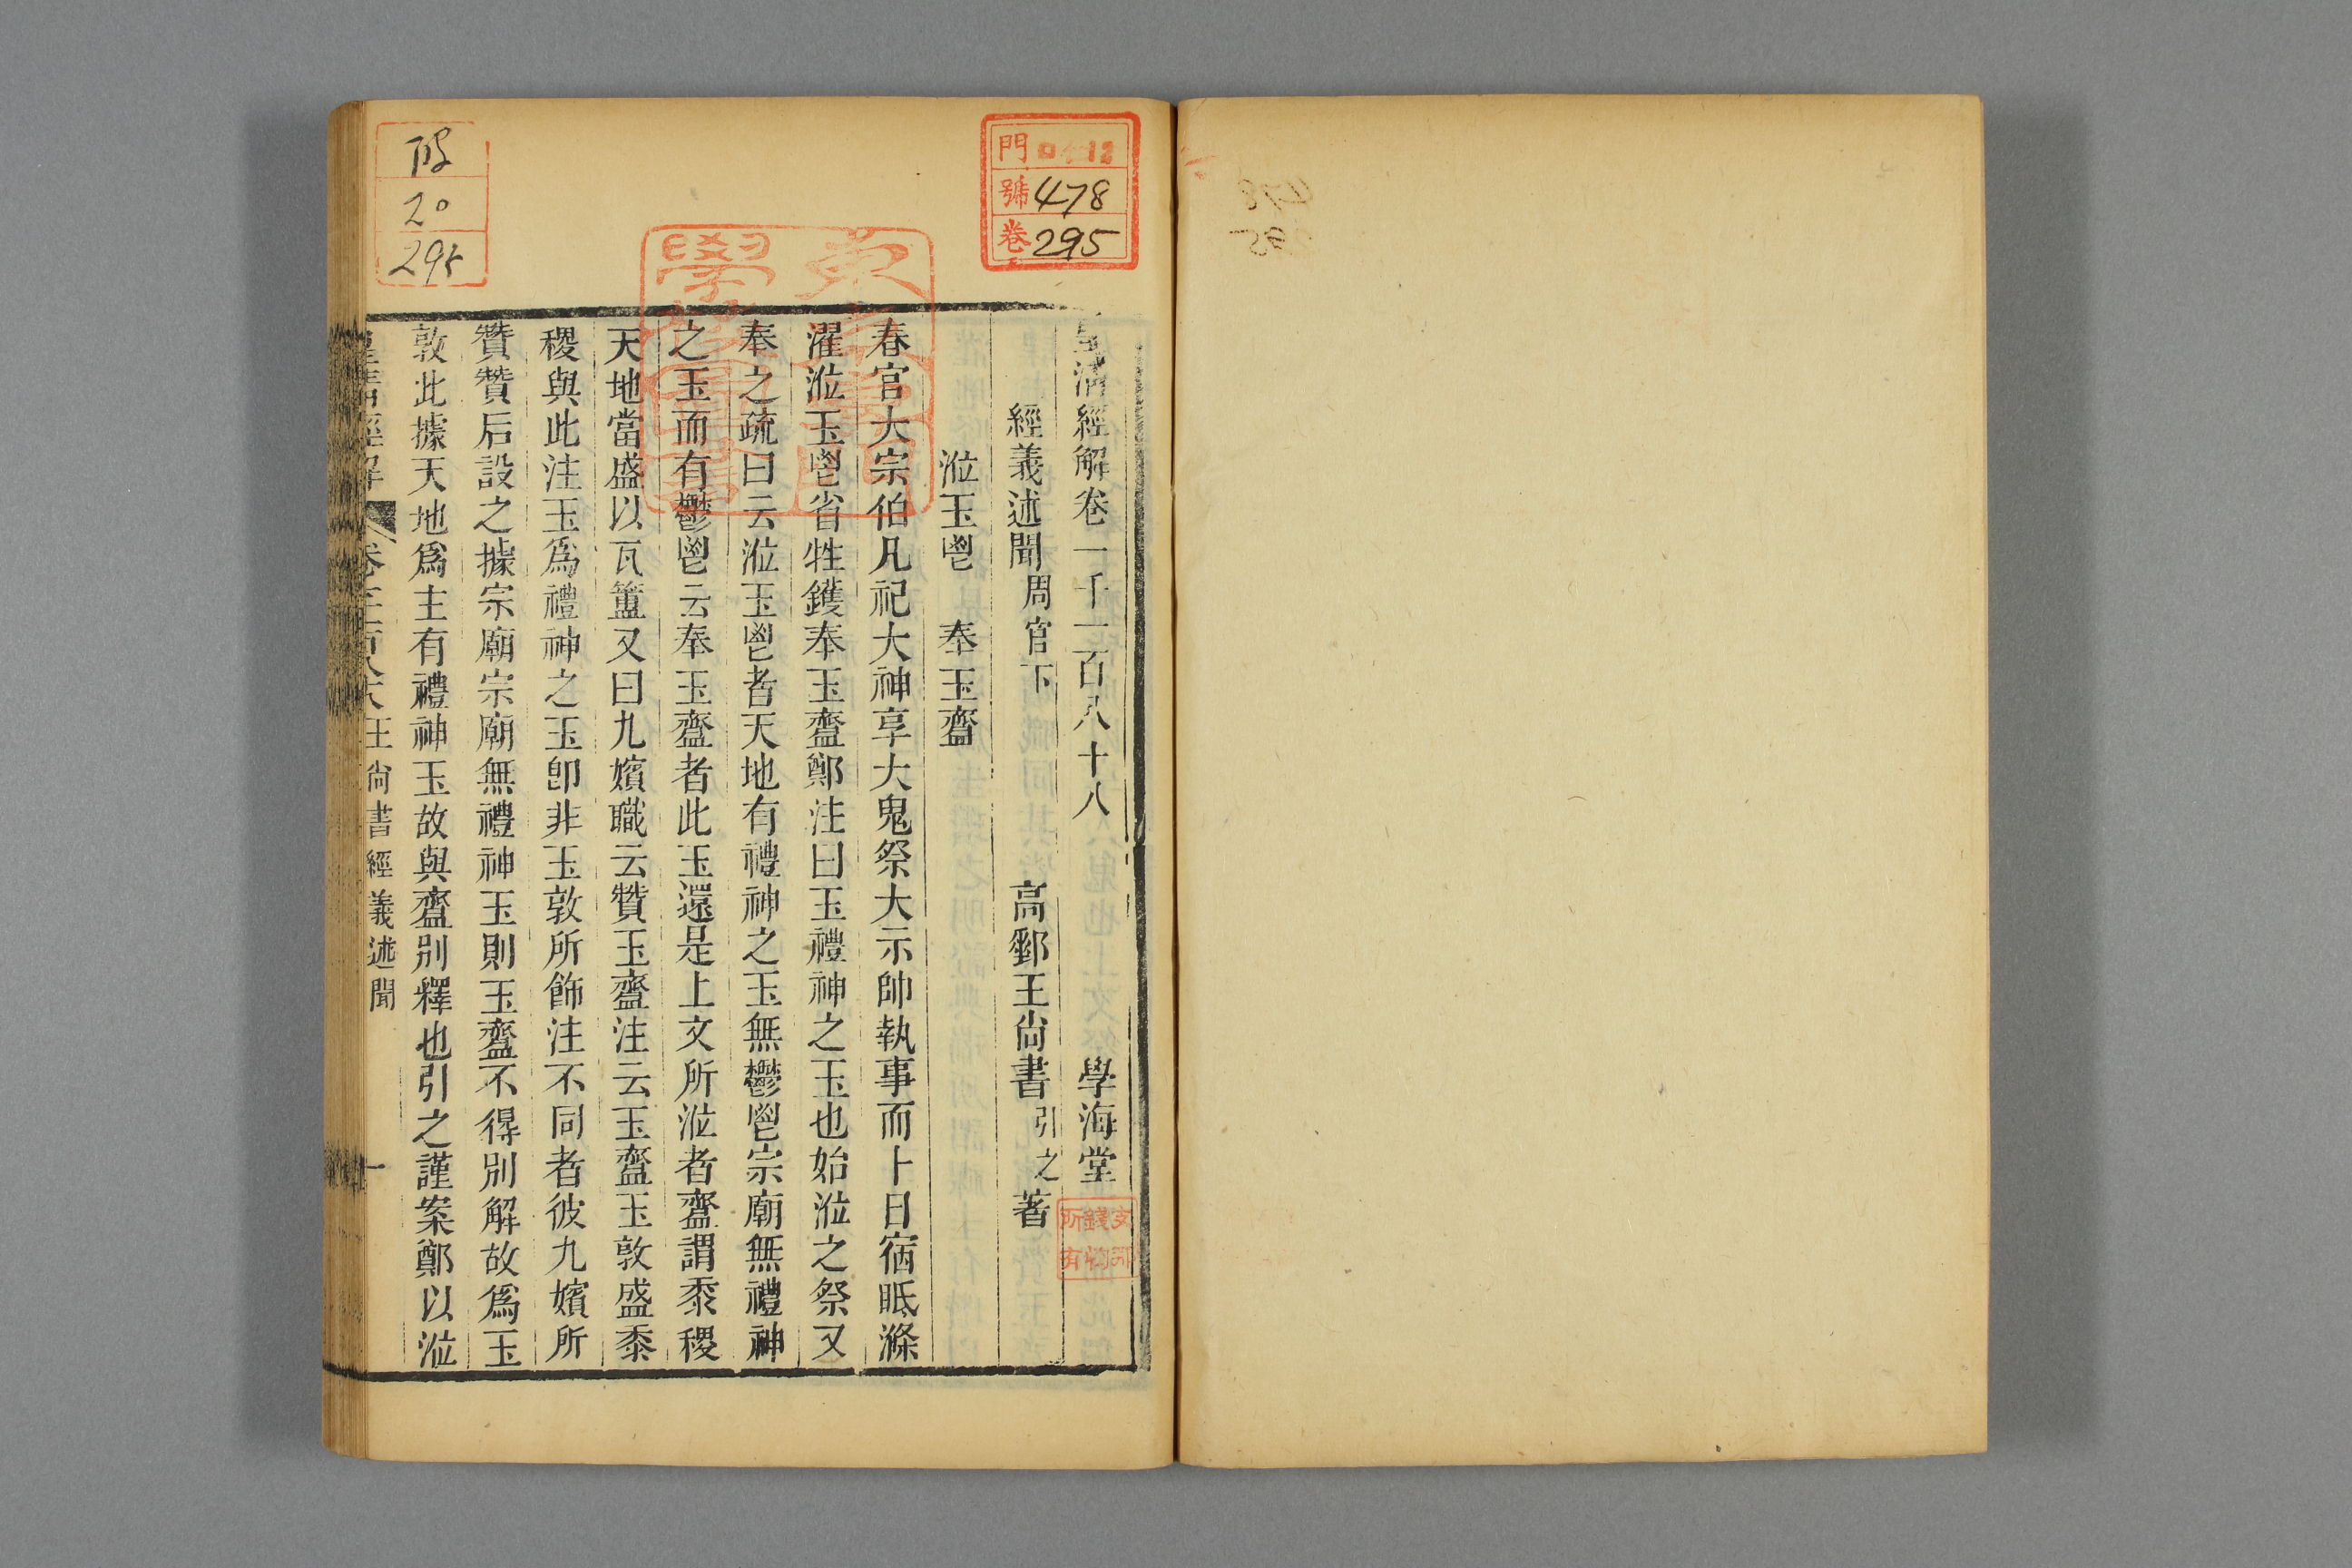 皇清經解卷一千一百八十八 學海堂
經義述聞周官下 高郵王尙書引之著
涖玉鬯 奉玉齍
春官大宗伯凡祀大神享大鬼祭大示帥執事而卜日宿眡滌
濯涖玉鬯省牲鑊奉玉齍鄭注曰玉禮神之玉也始涖之祭又
奉之疏曰云涖玉鬯者天地有禮神之玉無鬱鬯宗廟無禮神
之玉而有鬱鬯云奉玉齍者此玉還是上文所涖者齍謂黍稷
天地當盛以瓦簠又曰九嬪職云贊玉齍注云玉齍玉敦盛黍
稷與此注玉爲禮神之玉卽非玉敦所飾注不同者彼九嬪所
贊贊后設之據宗廟宗廟無禮神玉則玉齍不得別解故爲玉
敦此據天地爲主有禮神玉故與齍別釋也引之謹案鄭以涖
皇清經解 王尙書經義述聞 一
門
號 478
卷 295
20
295
所有